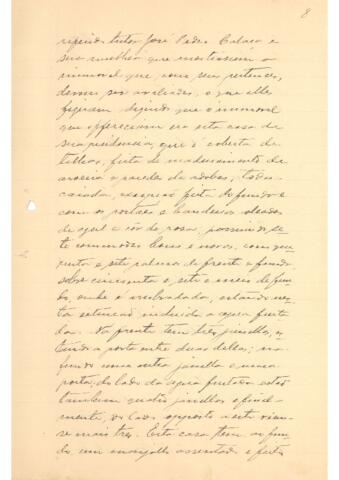 8
tutor José Pedro Calaço e
sua mulher que mostrassem o
immovel que, com seus pertences,
devem ser avaliados, o que elles
fizeram dizendo que o immovel
que offereciam era esta casa de
sua residencia, que é coberta de
telhas, feita de madeiramento de
aroeira e paredes de adobos, toda
caiada, esquerda fita do fundo e
com os portaes e bandeiras oleados
de azul e côr de rosa, possuindo se-
te commodos bons e novos, com
e sete palmos de frente e fundo
sobre cincoenta e sete e meio de fun-
do, onde é assobradada, estando nes-
ta incluida a agua furta-
da. Na frente tem tres janellas, es-
tando a porta entre duas dellas; no
fundo uma outra janella e uma
porta; do lado da agua furtada estão
tambem quatro janellas e final-
mente, do lado opposto a este 
se mais tres. Esta casa tem ao fun-
do, um monjollo assentado e feito